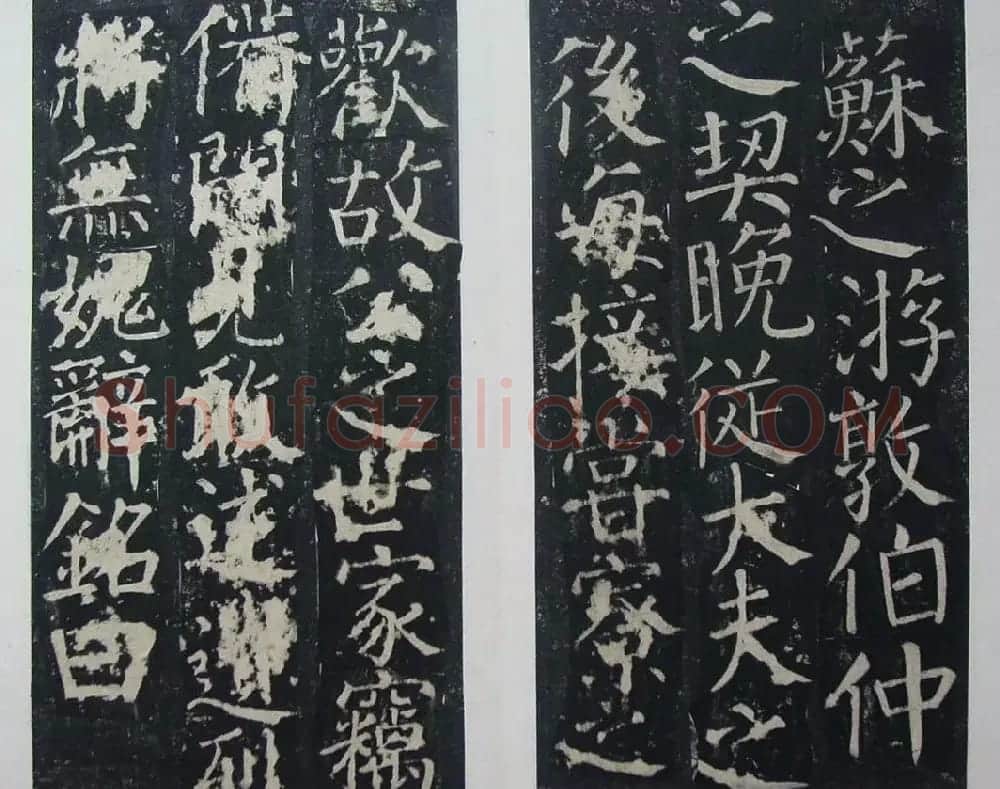 蘇之游敦伯仲
之契晚從大夫之
後每接寮之
歡故公之世家竊
備聞見敢述遺烈
將無愧辭銘曰
Shufaziliao.COM